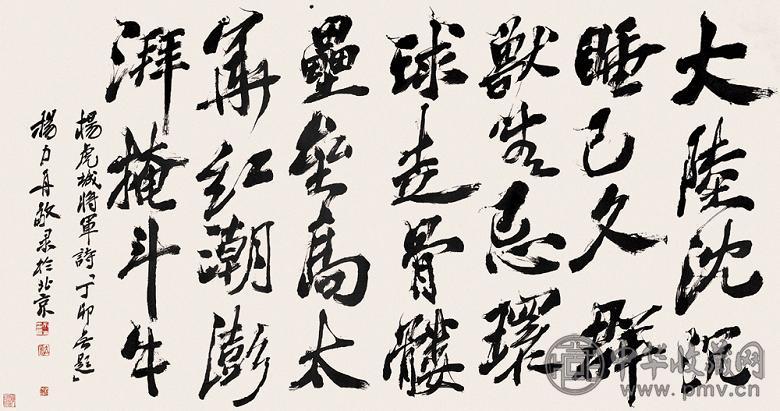 大陸沈沉
睡已久群
獸無忌環
球走骨髏
壘壘高太
華紅潮澎
湃掩斗牛
楊虎城將軍詩「丁卯無題」
楊力舟敬录於北京
中华收藏网
www.pmv.cn